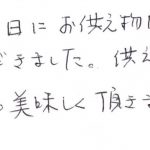 日にお供え物
だきました。供え
美味しく頂きま